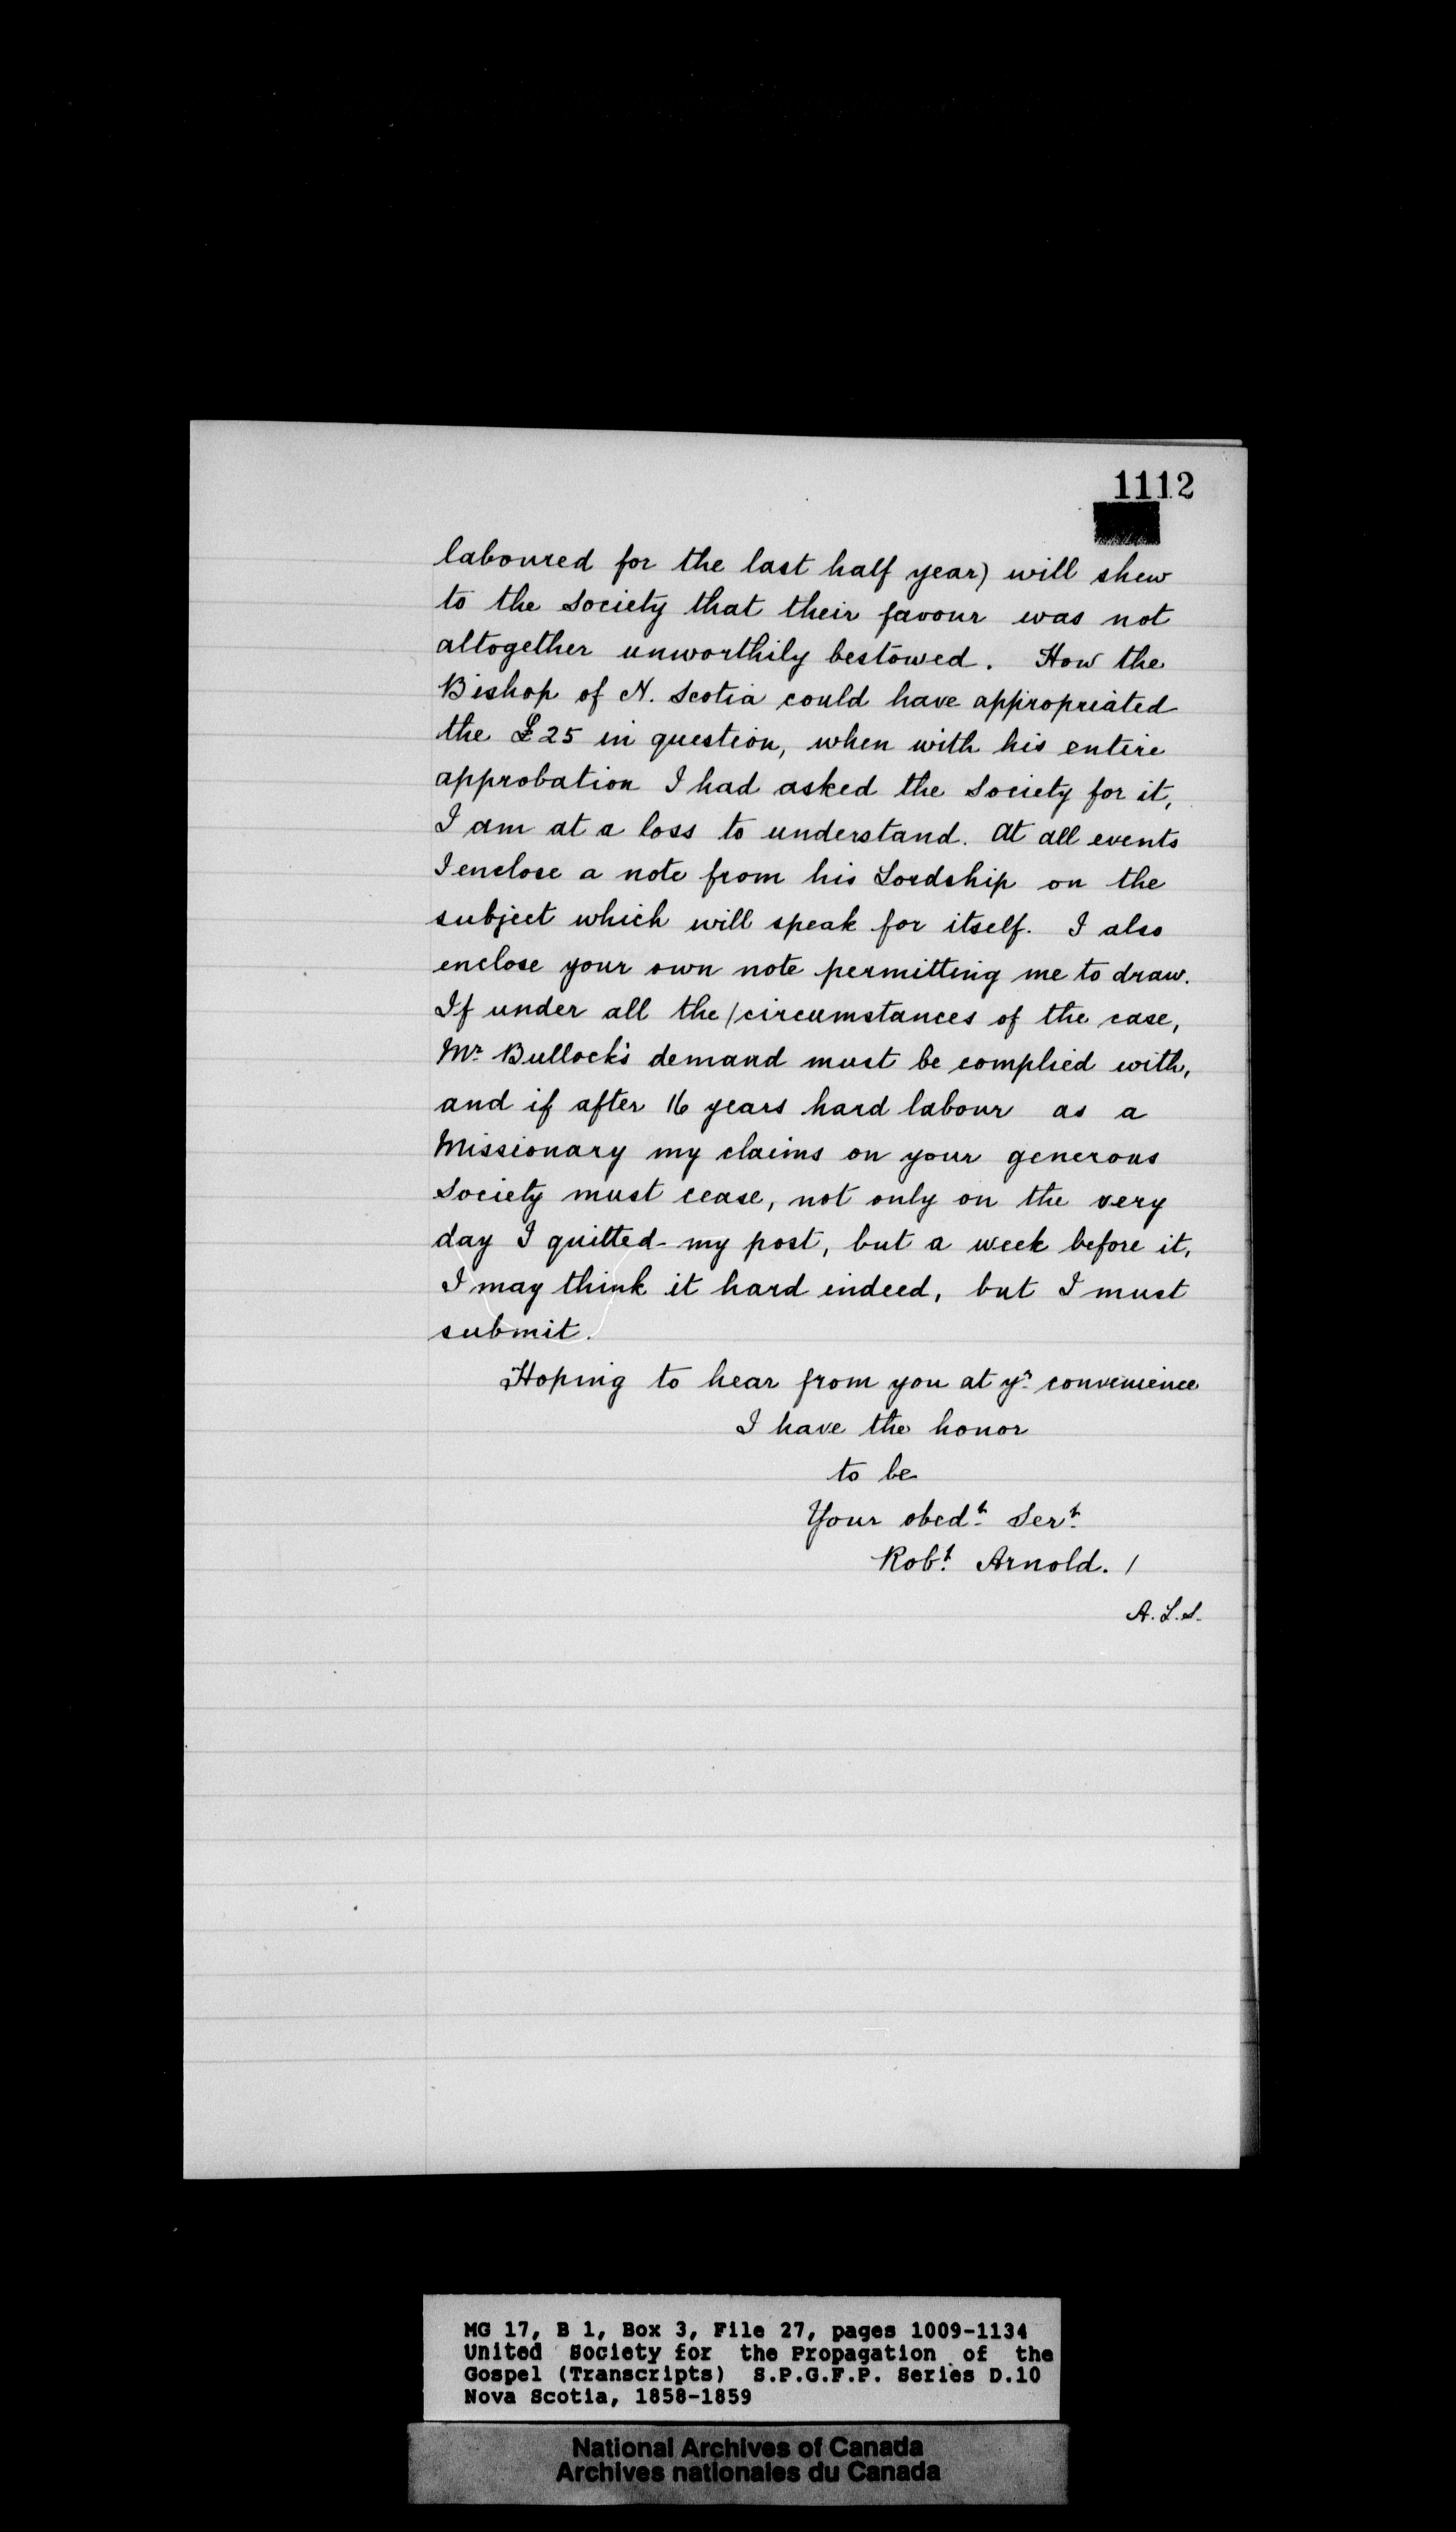 1112
laboured for the last half year) will shew
to the Society that their favour was not
altogether unworthily bestowed. How the
Bishop of N. Scotia could have appropriated
the £25 in question, when with his entire
approbation I had asked the Society for it,
I am at a loss to understand. At all events
I enclose a note from his Lordship on the
subject which will speak for itself. I also
enclose your own note permitting me to draw.
If under all the/circumstances of the case,
Mr. Bullock's demand must be complied with,
and if after 16 years hard labour as a
Missionary my claims on your generous
Society must cease, not only on the very
day I quitted my post, but a week before it,
I may think it hard indeed, but I must
submit.
Hoping to hear from you at yr. convenience
I have the honor
to be
Your obedt. Sert.
Robt. Arnold. /
A.L.S.
MG 17, B 1, Box 3, File 27, pages 1009-1134
United Society for the Propagation of the
Gospel (Transcripts) S.P.G.F.P. Series D.10
Nova Scotia, 1858-1859
National Archives of Canada
Archives nationales du Canada